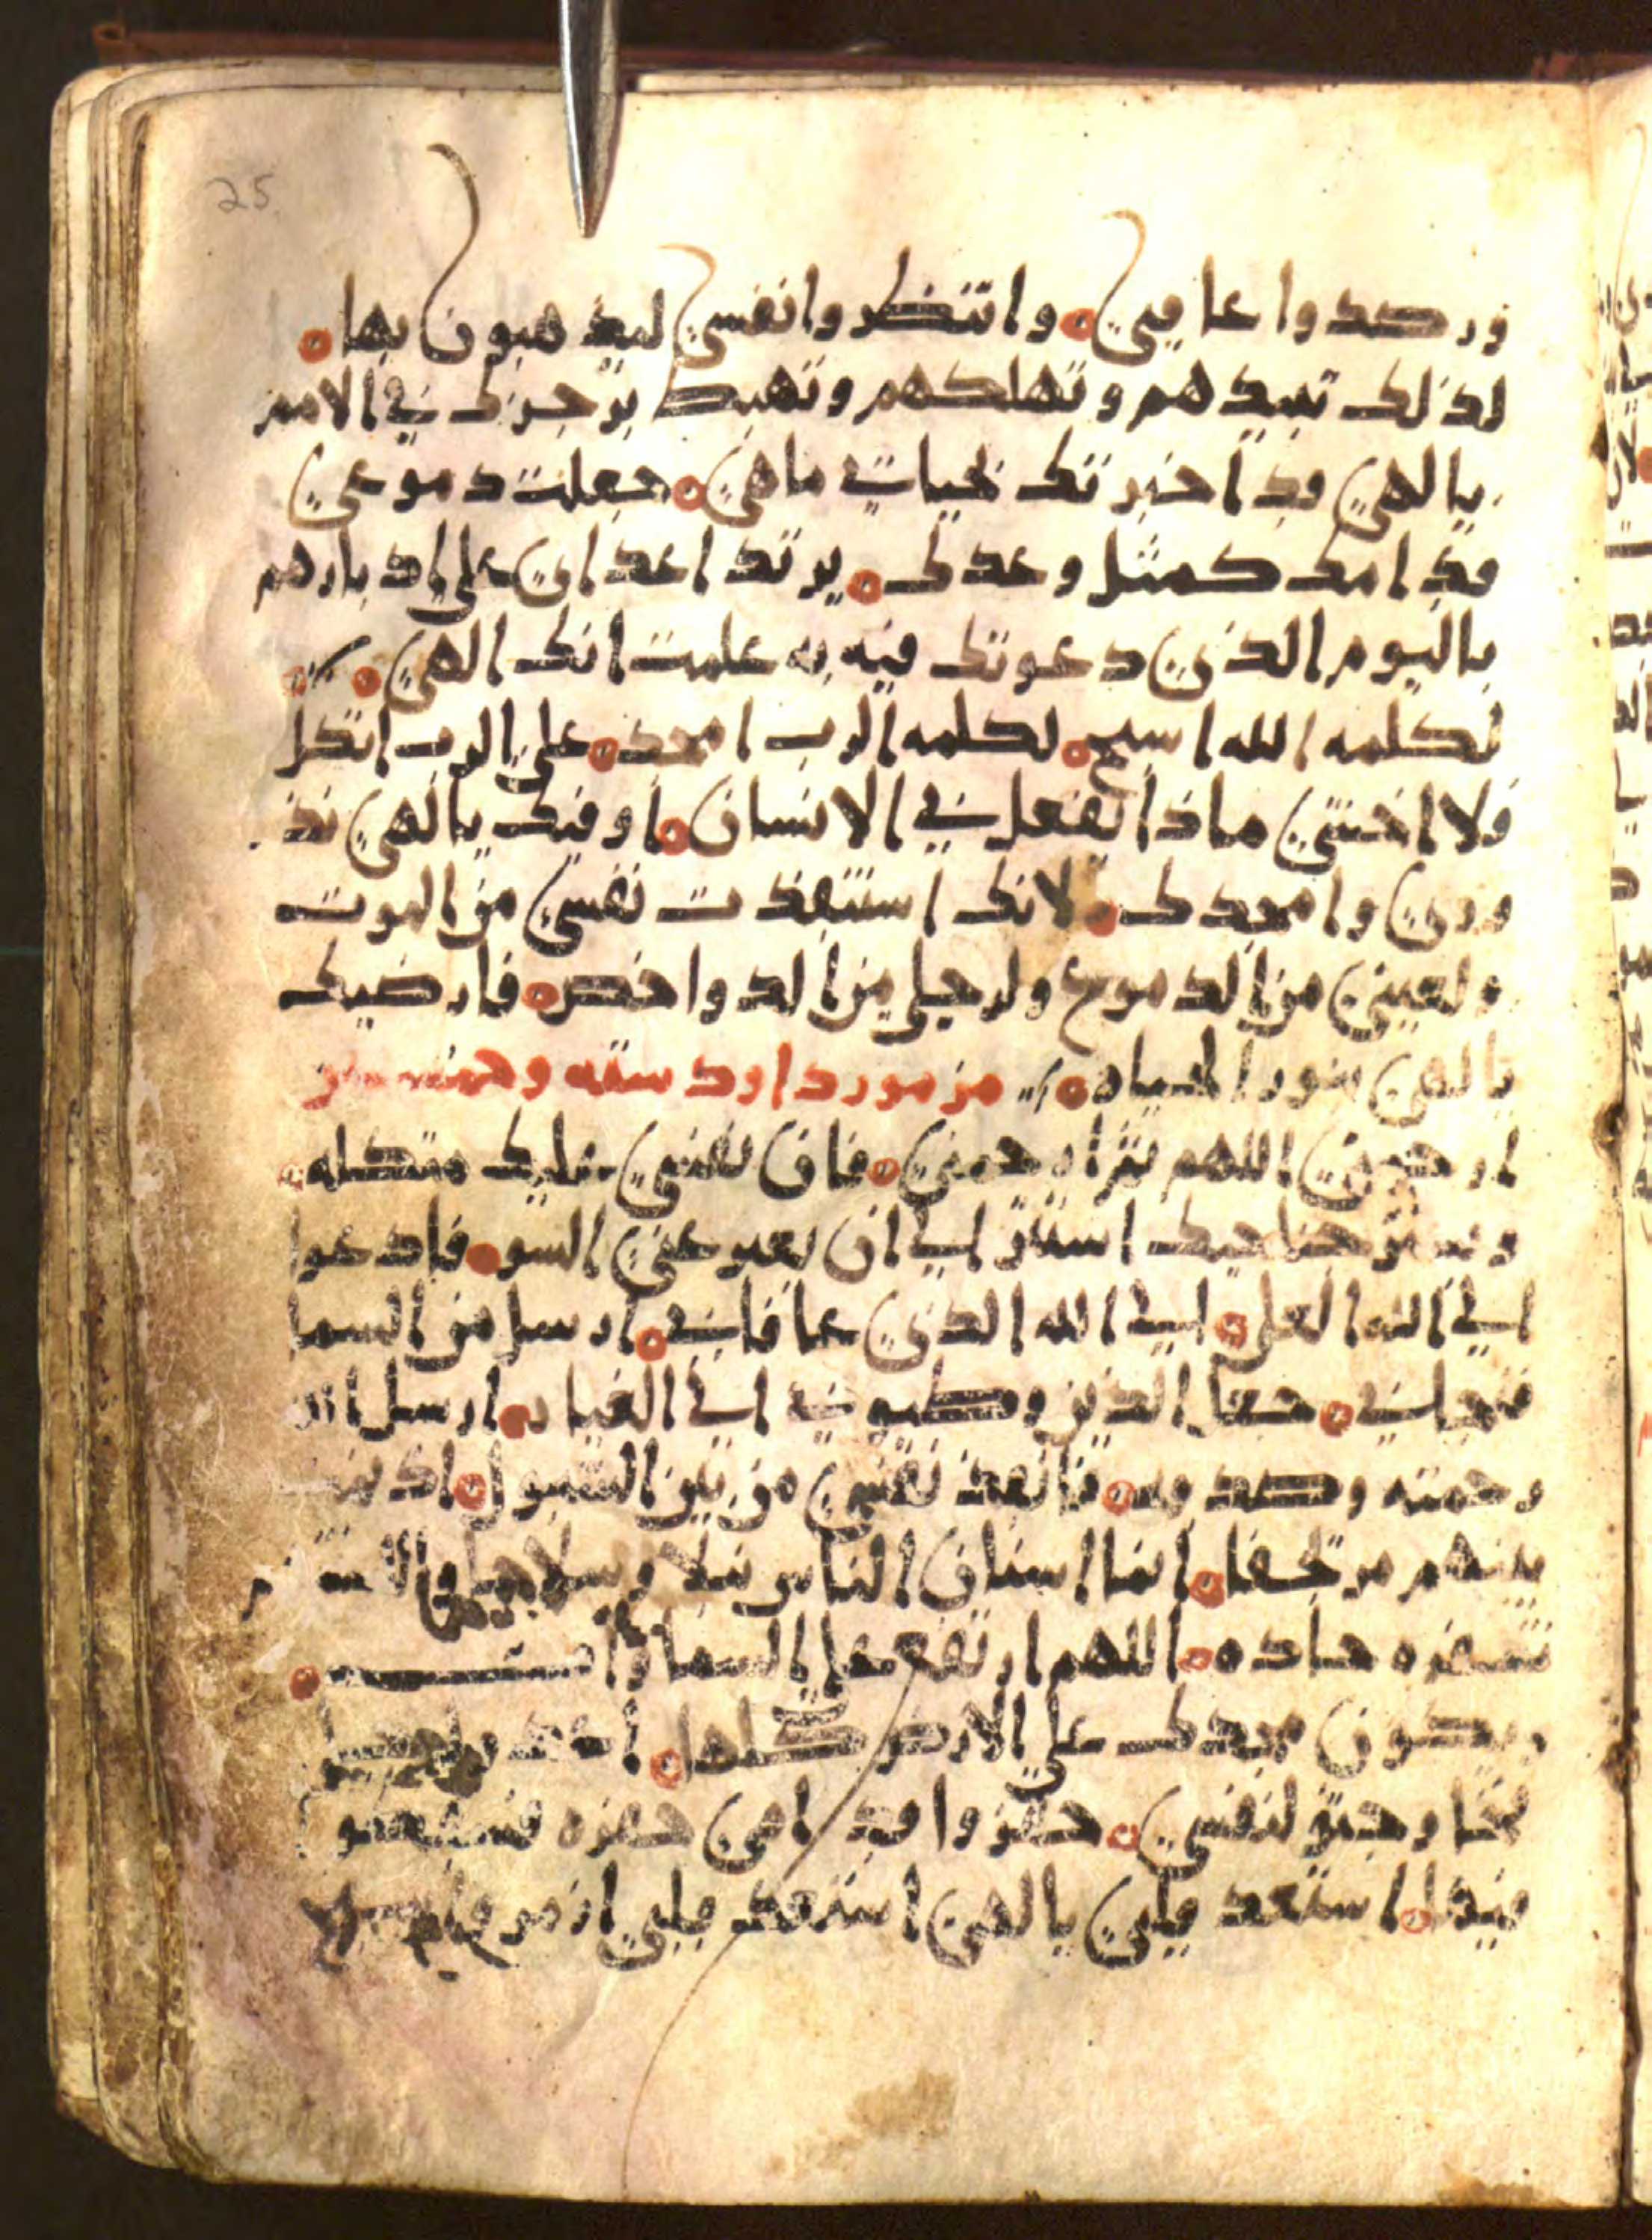 25
ورصدوا عاقبي وانتظروا نفسي ليذهبون بها
لذلك تبيدهم وتهلكهم وتهبط برجزك في الامم
يالهي قد اخبرتك بحياتي ماهي جعلت دموعي
قدامك كمثل وعدك يرتد اعداي على ادبارهم
باليوم الذي دعوتك فيه به علمت انك الهي
لكلمه الله اسبح لكلمه الرب امجد على الرب اتكل
فلا اخشى ماذا يفعل في الانسان اوفيك يالهي نذ
وري وامجدك لانك استنقذت نفسي من الموت
ولعيني من الدموع ولرجلي من الدواخص فارضيك
يالهي بنور الحياه مزمور داود سته وخمسين
ارحمني اللهم ثم ارحمني فان نفسي عليك متكله
وبستر جناحيك استتر الى ان يعبر عني السو فادعوا
الى الله العلي الى الله الذي عافاني ارسل من السما
فنجاني جعل الذين وطيوني الى العيار ارسل الله
رحمته وصدقه فانقذ نفسي من بين الشبول اذ نمت
بينهم مرتجفا ابنا اسنان الناس نبلا وسلاحا
شفره حاده اللهم ارتفع على السما
ويكون مجدك على الارض كلها
فخا وحنو لنفسي حفروا قدامي حفره فسقطوا
فيها استعد قلبي يالهي استعد قلبي ازمر